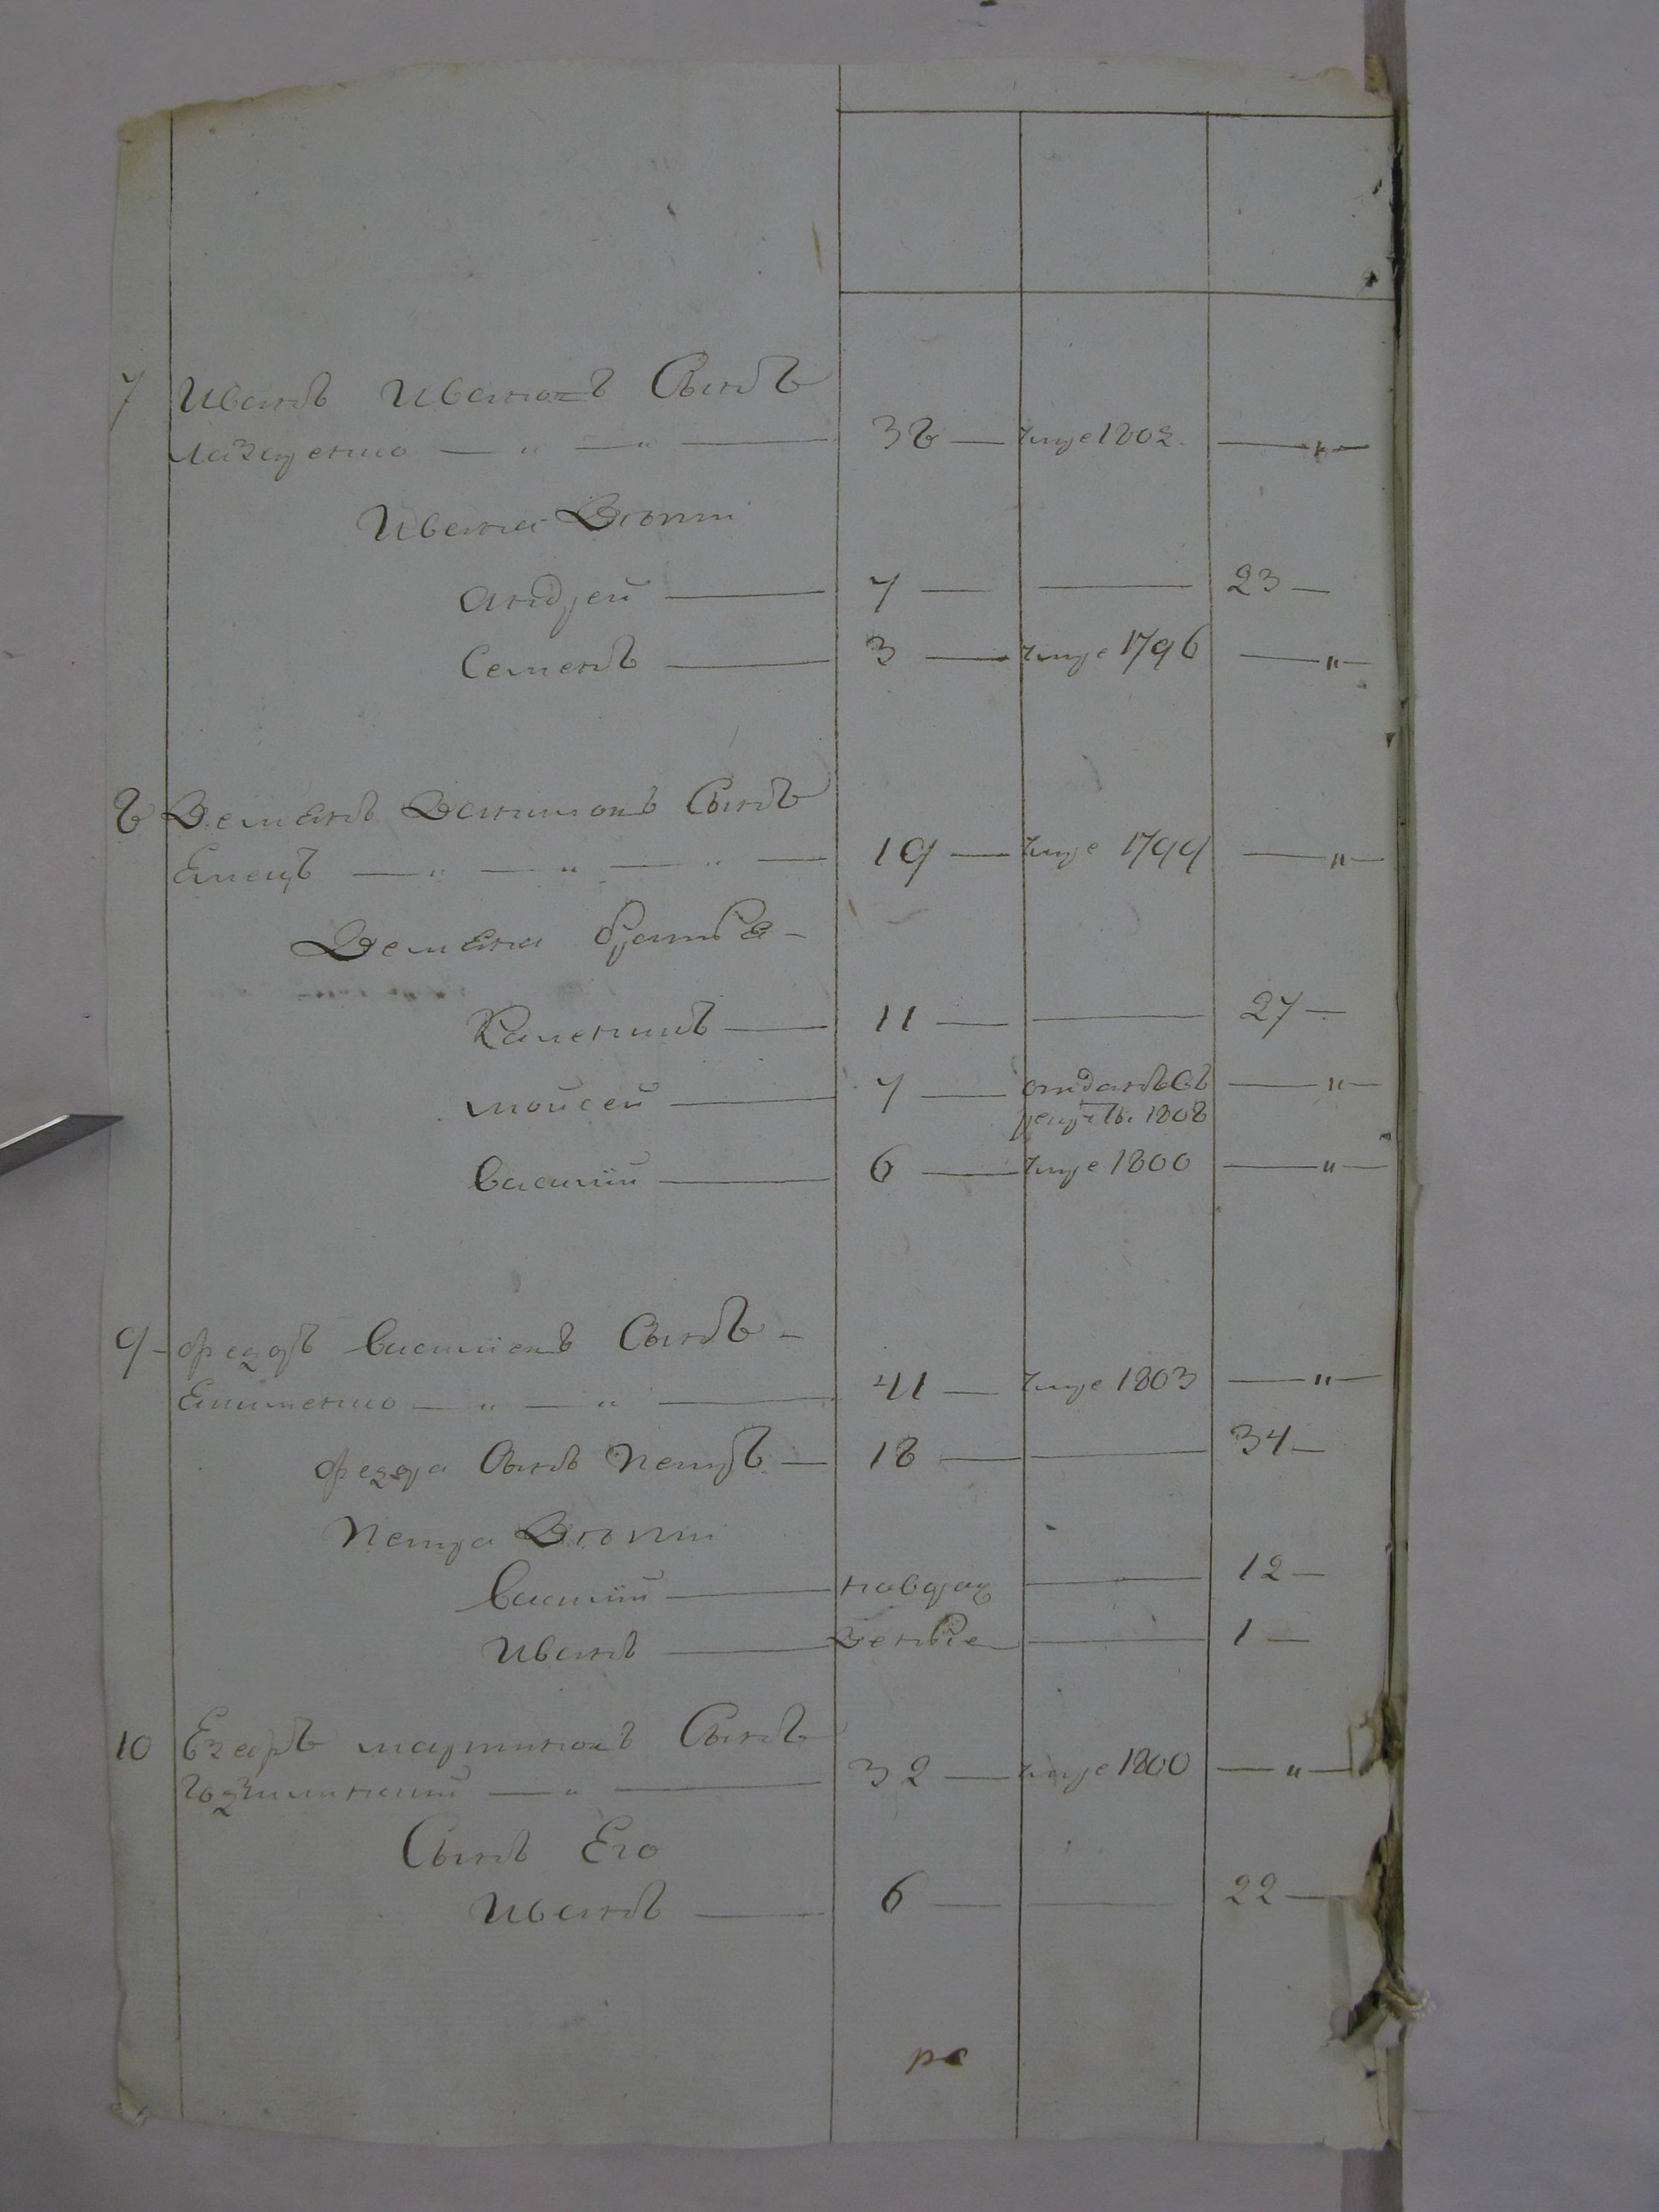 7 Иванъ Ивановъ Сынъ
Лазаренко — " — " — 38 — умре 1802. — " —
Ивана Дѣти
Андрей — 7 — — 23 —
Семенъ — 3 — умре 1796 — " —
8 Демянъ Даниловъ Сынъ
Емецъ — " — " — " — 19 — умре 1799 — " —
Демяна братья —
Каленикъ — 11 — — 27 —
Мойсей — 7 — отданъ въ — " —
рекруты 1808
Василій — 6 — умре 1800 — " —
9 — Федоръ Василіевъ Сынъ —
— " — " — 41 — умре 1803 — " —
Федора Сынъ Петръ — 18 — — 34 —
Петра Дѣти
Василій — новорож — 12 —
Иванъ — денніе — 1 —
10 Егоръ Мартиновъ Сынъ
— " — 32 — умре 1800 — " —
Сынъ Его
Иванъ — 6 — — 22 —